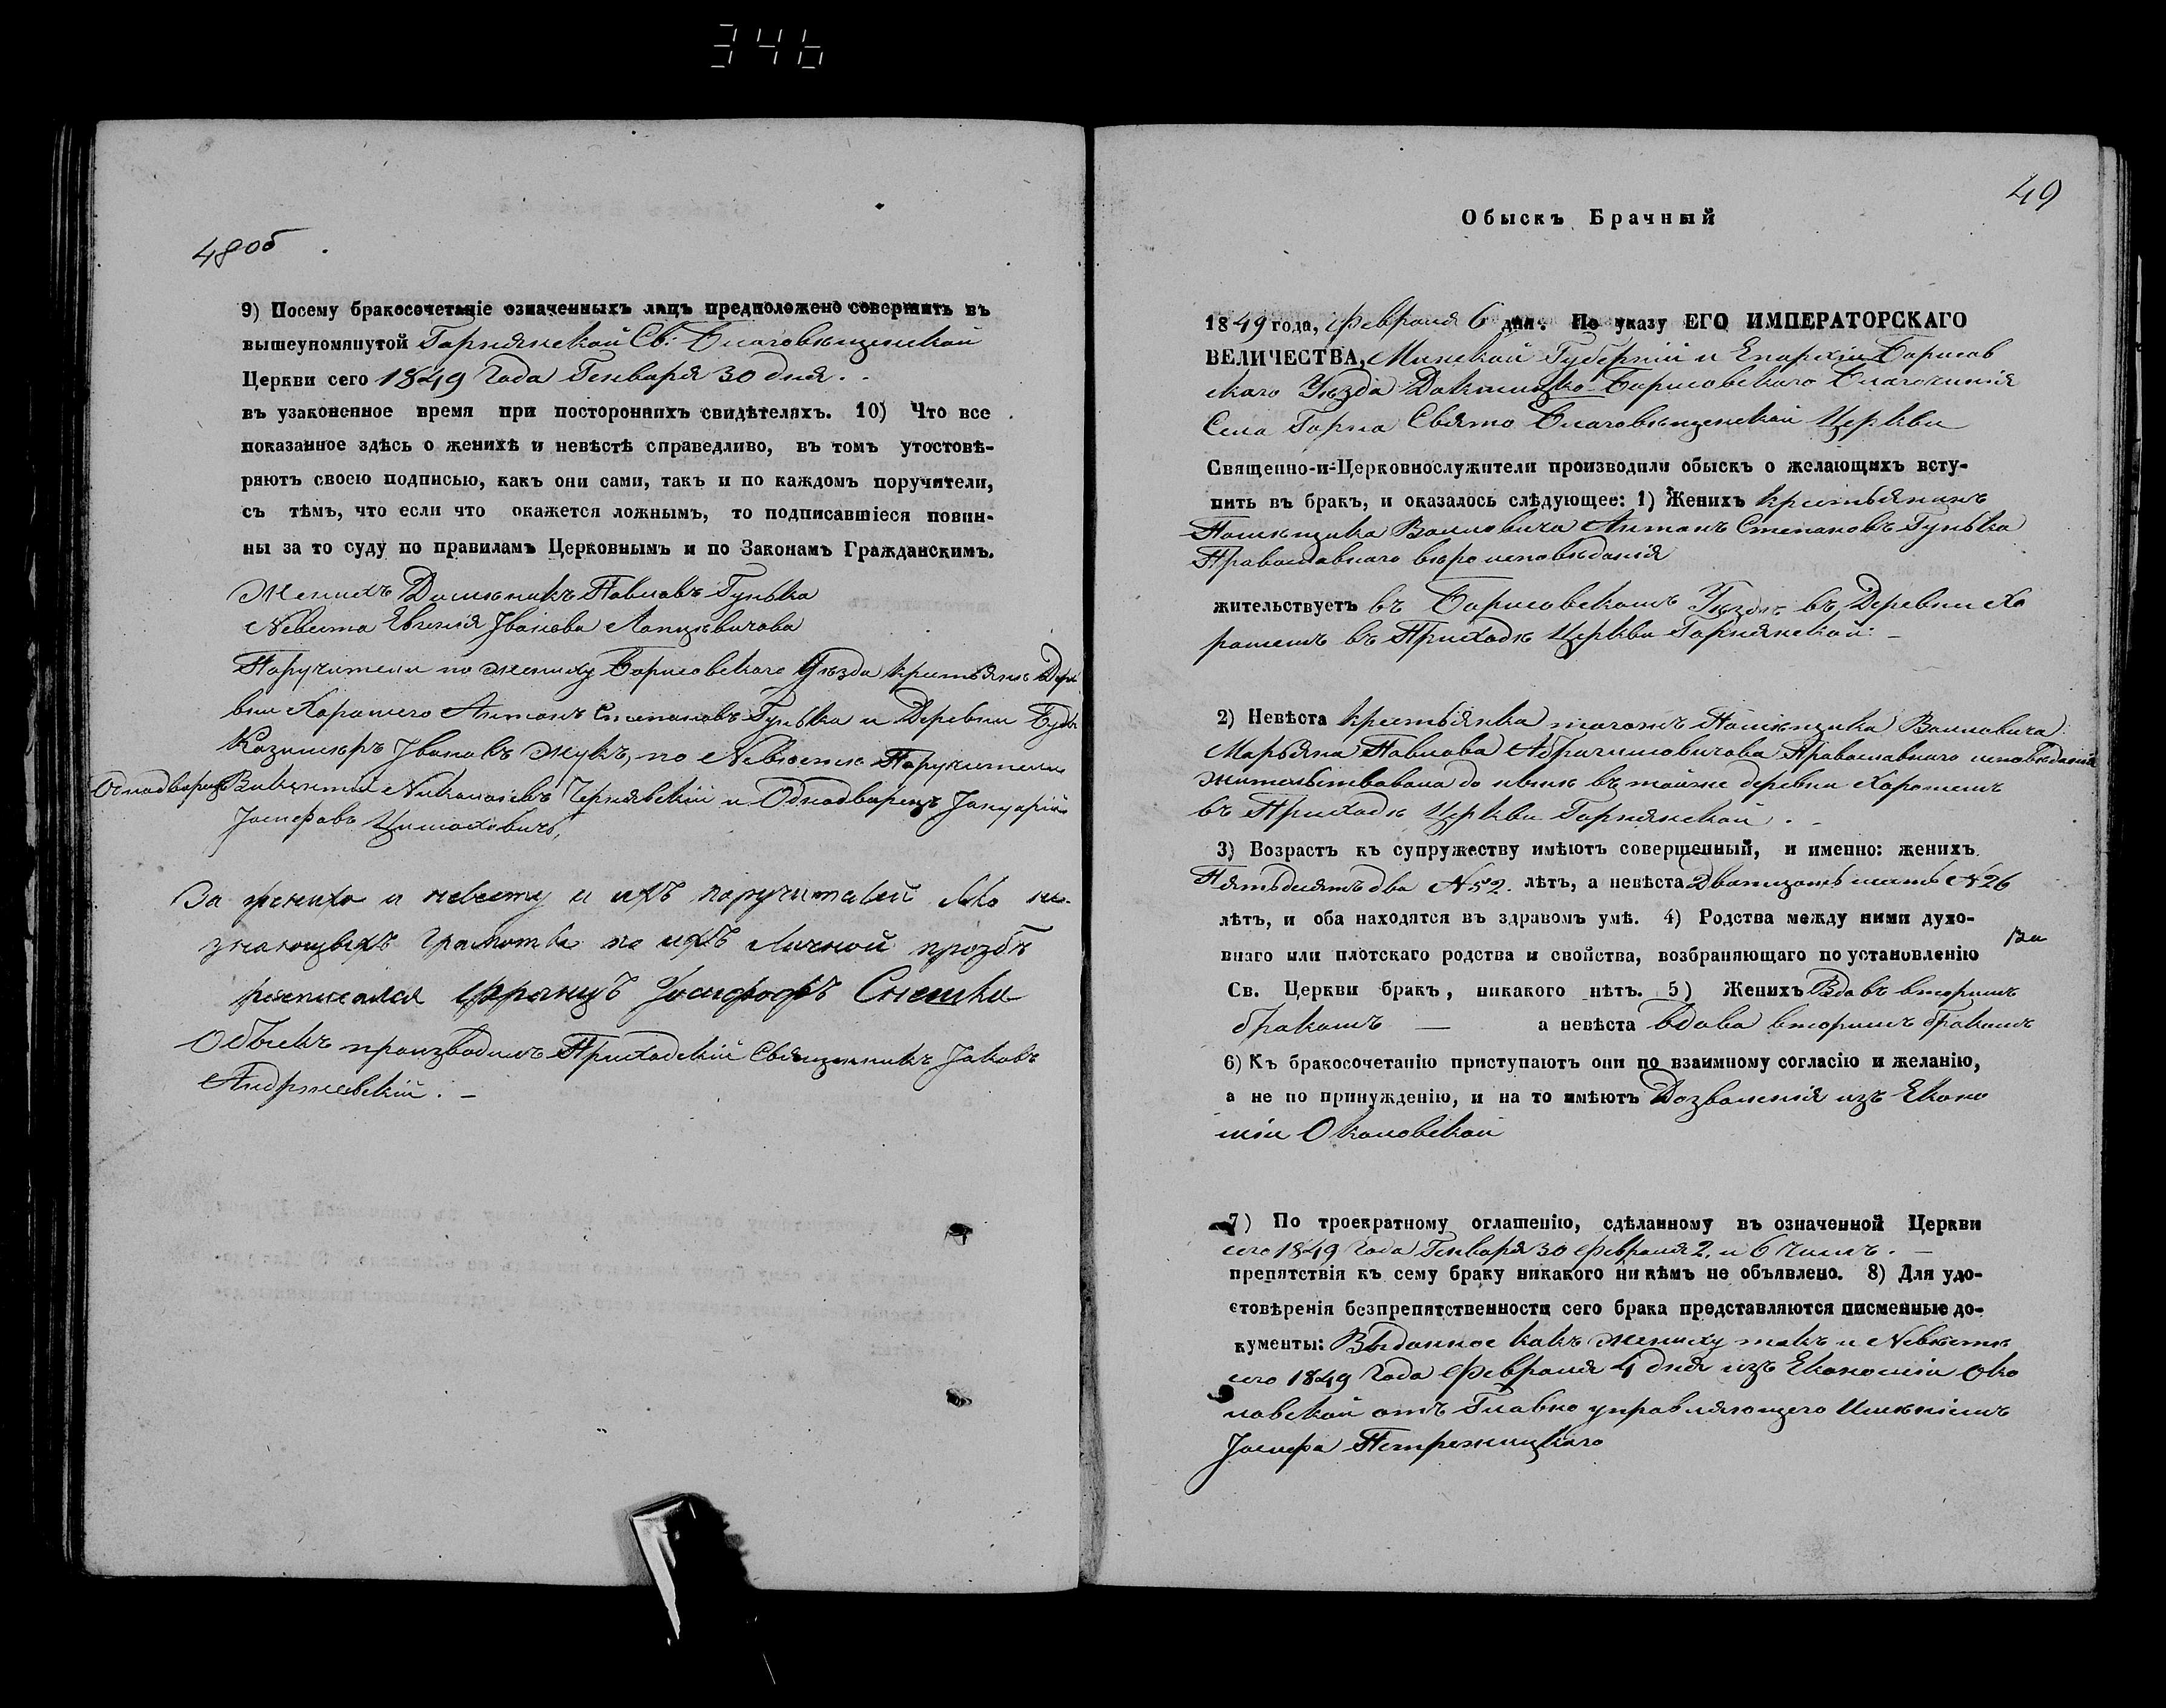 346
48об
9) Посему бракосочетаніе означенныхъ лицъ предположено совершить въ
вышеупомянутой Горнянской Св: Благовѣщенской
Церкви сего 1849 Года Генваря 30 дня.
въ узаконенное время при постороннихъ свидѣтеляхъ. 10) Что все
показанное здѣсь о женихѣ и невѣстѣ справедливо, въ томъ утостовѣ-
ряютъ своею подписью, какъ они сами, такъ и по каждомъ поручители,
съ тѣмъ, что если что окажется ложнымъ, то подписавшіеся повин-
ны за то суду по правиламъ Церковнымъ и по Законамъ Гражданскимъ.
Женихъ Павловъ Гунька
Невеста Евгенія Іванова Лапцевичова
Поручители по жениху Борисовскаго Уѣзда крестьяне Дере
вни Хорошего Антонъ Степановъ Гунька и Деревни
Казимиръ Івановъ Жукъ, по Невестѣ Поручители
Однодворецъ Викентій Николаевъ Чернявскій и Однодворецъ Януарій
Іосифовъ
За жениха и невесту и ихъ поручителей яко не-
знающихъ грамоты по ихъ Личной прозбѣ
росписался Францъ Іосифовъ Снешко
Обыскъ производилъ Приходскій Священникъ Іаковъ
Андржеевскій. –
49
Обыскъ Брачный
1849 года, Февраля 6 дня. По указу ЕГО ИМПЕРАТОРСКАГО
ВЕЛИЧЕСТВА, Минской Губерніи и Епархіи Борисов
скаго Уѣзда Докшицко-Борисовскаго Благочинія
Села Горна Свято Благовѣщенской Церкви
Священно-и-Церковнослужители производили обыскъ о желающихъ всту-
пить въ бракъ, и оказалось слѣдующее: 1) Женихъ крестьянинъ
Помѣщика Воиловича Антонъ Степановъ Гунька
Православнаго вѣроисповѣданія
жительствуетъ въ Борисовскомъ Уѣздѣ въ Деревни Хо
рошемъ въ Приходѣ Церкви Горнянской: –
2) Невѣста крестьянка тогожъ Помѣщика Воиловича
Марьяна Павлова Абрагимовичова Православнаго исповѣданія
жительствовала до ныне въ тойже деревни Хорошемъ
въ Приходѣ Церкви Горнянской. -
3) Возрастъ къ супружеству имѣютъ совершенный, и именно: женихъ
Пятьдесятъ два №52. лѣтъ, а невѣста Двадцать шесть №26
лѣтъ, и оба находятся въ здравомъ умѣ. 4) Родства между ними духо-
внаго или плотскаго родства и свойства, возбраняющаго по установленію
Св. Церкви бракъ, никакого нѣтъ. 5) Женихъ Вдовъ вторимъ
бракомъ — а невѣста вдова вторимъ бракомъ
6) Къ бракосочетанію приступаютъ они по взаимному согласію и желанію,
а не по принужденію, и на то имѣютъ Дозволенія изъ Еконо
міи Околовской
7) По троекратному оглашенію, сдѣланному въ означенной Церкви
сего 1849 Года Генваря 30 Февраля 2. и 6 чиселъ. –
препятствія къ сему браку никакого никѣмъ не объявлено. 8) Для удо-
стовѣренія безпрепятственности сего брака представляются писменные до-
кументы: Выданное какъ жениху такъ и Невѣстѣ
сего 1849 Года Февраля 4 дня изъ Економіи Око
ловской отъ Главно управляющего Имѣніемъ
Іосифа Петрежицкаго